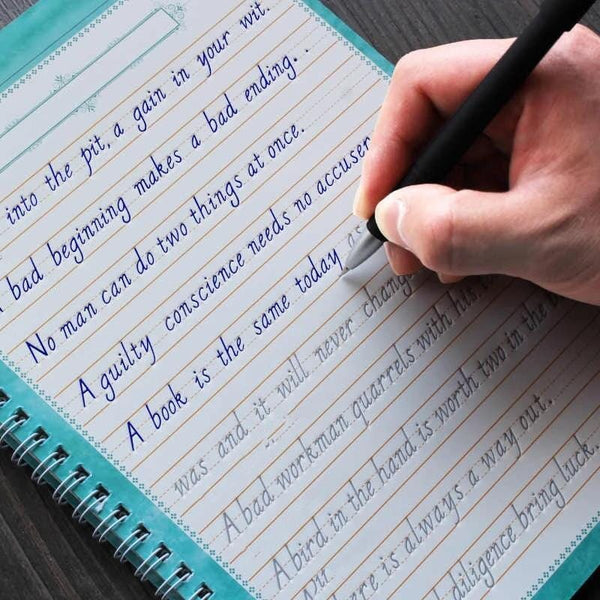 into the pit, a gain in your wit.
bad beginning makes a bad ending..
No man can do two things at once.
A guilty conscience needs no accuser
A book is the same today as
was and it will never chang
A bad workman quarrels with his
A bird in the hand is worth two in the
ere is always a way out.
diligence bring luck.